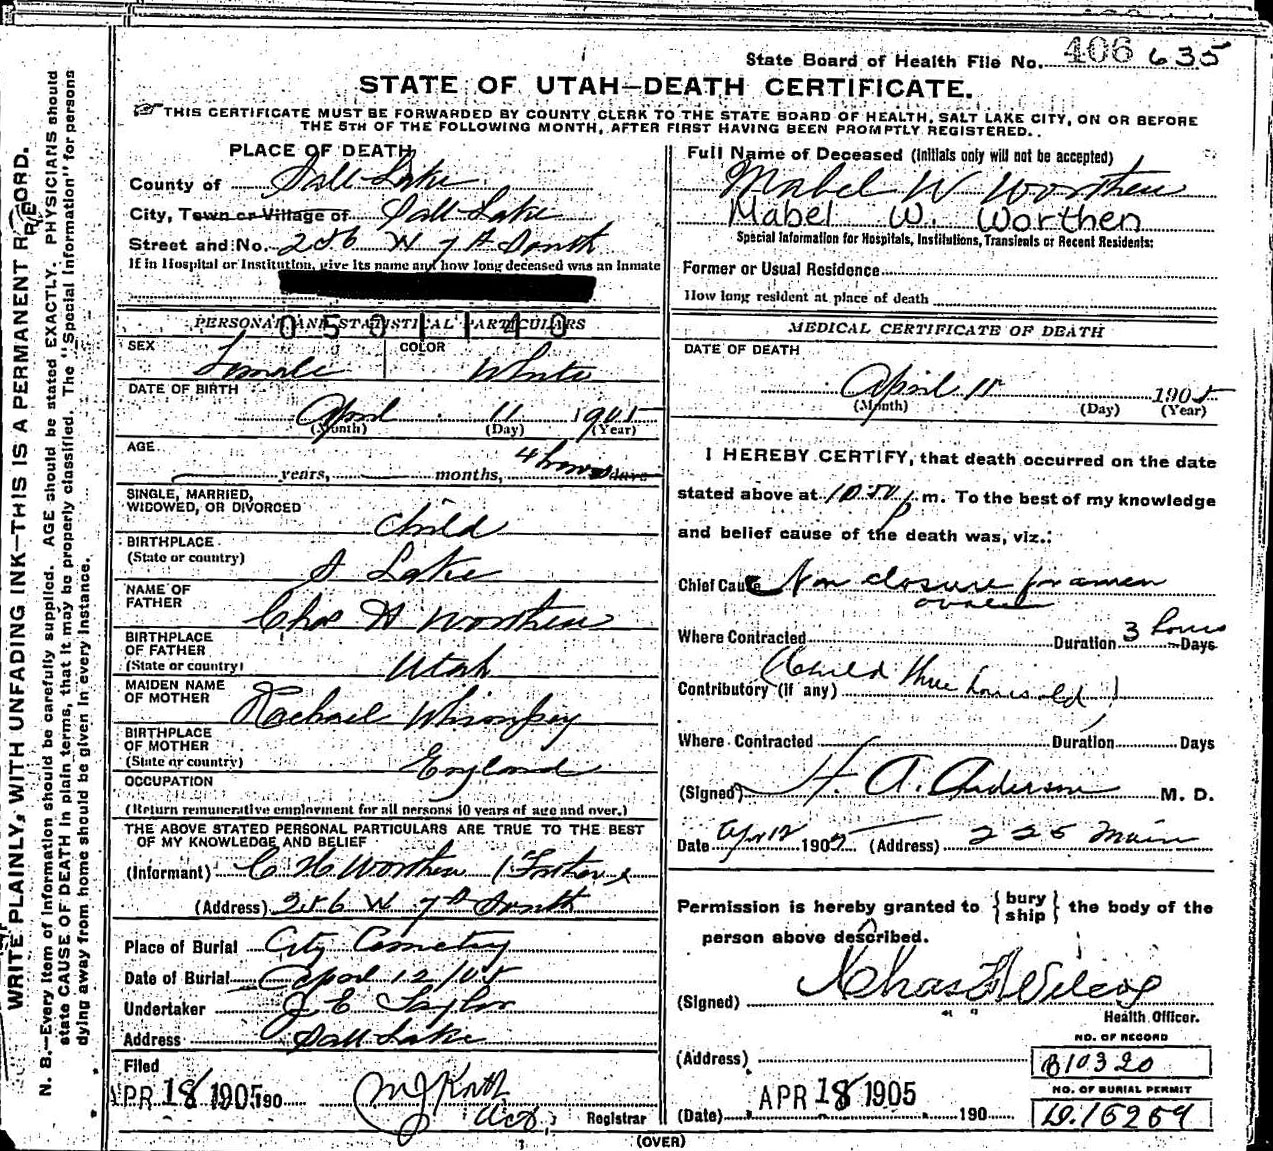 State Board of Health File No. 406 635
STATE OF UTAH—DEATH CERTIFICATE.
THIS CERTIFICATE MUST BE FORWARDED BY COUNTY CLERK TO THE STATE BOARD OF HEALTH, SALT LAKE CITY, ON OR BEFORE
THE 5TH OF THE FOLLOWING MONTH, AFTER FIRST HAVING BEEN PROMPTLY REGISTERED.
WRITE PLAINLY, WITH UNFADING INK—THIS IS A PERMANENT RECORD.
N. B.—Every item of information should be carefully supplied. AGE should be stated EXACTLY. PHYSICIANS should
state CAUSE OF DEATH in plain terms, that it may be properly classified. The "Special Information" for persons
dying away from home should be given in every instance.
PLACE OF DEATH
County of Salt Lake
City, Town or Village of Salt Lake
Street and No. 256 W 7th South
If in Hospital or Institution, give its name and how long deceased was an inmate
PERSONAL AND STATISTICAL PARTICULARS
0501140
SEX Female
COLOR White
DATE OF BIRTH
April 11 1905
(Month) (Day) (Year)
AGE
years, months, 4 hours days
SINGLE, MARRIED,
WIDOWED, OR DIVORCED Child
BIRTHPLACE
(State or country) S Lake
NAME OF
FATHER Chas H Worthen
BIRTHPLACE
OF FATHER
(State or country) Utah
MAIDEN NAME
OF MOTHER Rachael Whimpey
BIRTHPLACE
OF MOTHER
(State or country) England
OCCUPATION
(Return remunerative employment for all persons 10 years of age and over.)
THE ABOVE STATED PERSONAL PARTICULARS ARE TRUE TO THE BEST
OF MY KNOWLEDGE AND BELIEF
(Informant) C H Worthen (Father
(Address) 256 W 7th South
Place of Burial City Cemetery
Date of Burial April 12/05
Undertaker J E Taylor
Address Salt Lake
Filed
APR 18 1905 190
Registrar
Full Name of Deceased (Initials only will not be accepted)
Mabel W Worthen
Mabel W. Worthen
Special Information for Hospitals, Institutions, Transients or Recent Residents:
Former or Usual Residence
How long resident at place of death
MEDICAL CERTIFICATE OF DEATH
DATE OF DEATH
April 11 1905
(Month) (Day) (Year)
I HEREBY CERTIFY, that death occurred on the date
stated above at 10:50 p m. To the best of my knowledge
and belief cause of the death was, viz.:
Chief Cause Non closure foramen
ovale
Where Contracted Duration 3 hours Days
Contributory (if any) (Child three hours old)
Where Contracted Duration Days
(Signed) H. A. Anderson M. D.
Date Apr 12 1905 (Address) 225 Main
Permission is hereby granted to {bury
ship} the body of the
person above described.
(Signed) Chas F Wilcox
Health Officer.
(Address)
(Date) APR 18 1905 190
NO. OF RECORD
B10320
NO. OF BURIAL PERMIT
D.15269
(OVER)